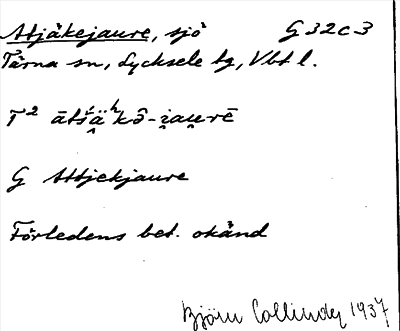 Atjåkejaure, sjö G 32 c 3
Tärna sn, Lycksele lg, Vbt l.
T² ātśä̭ʰkō̂-i̭au̯rē
G Attjekjaure
Förledens bet. okänd
Björn Collinder 1937